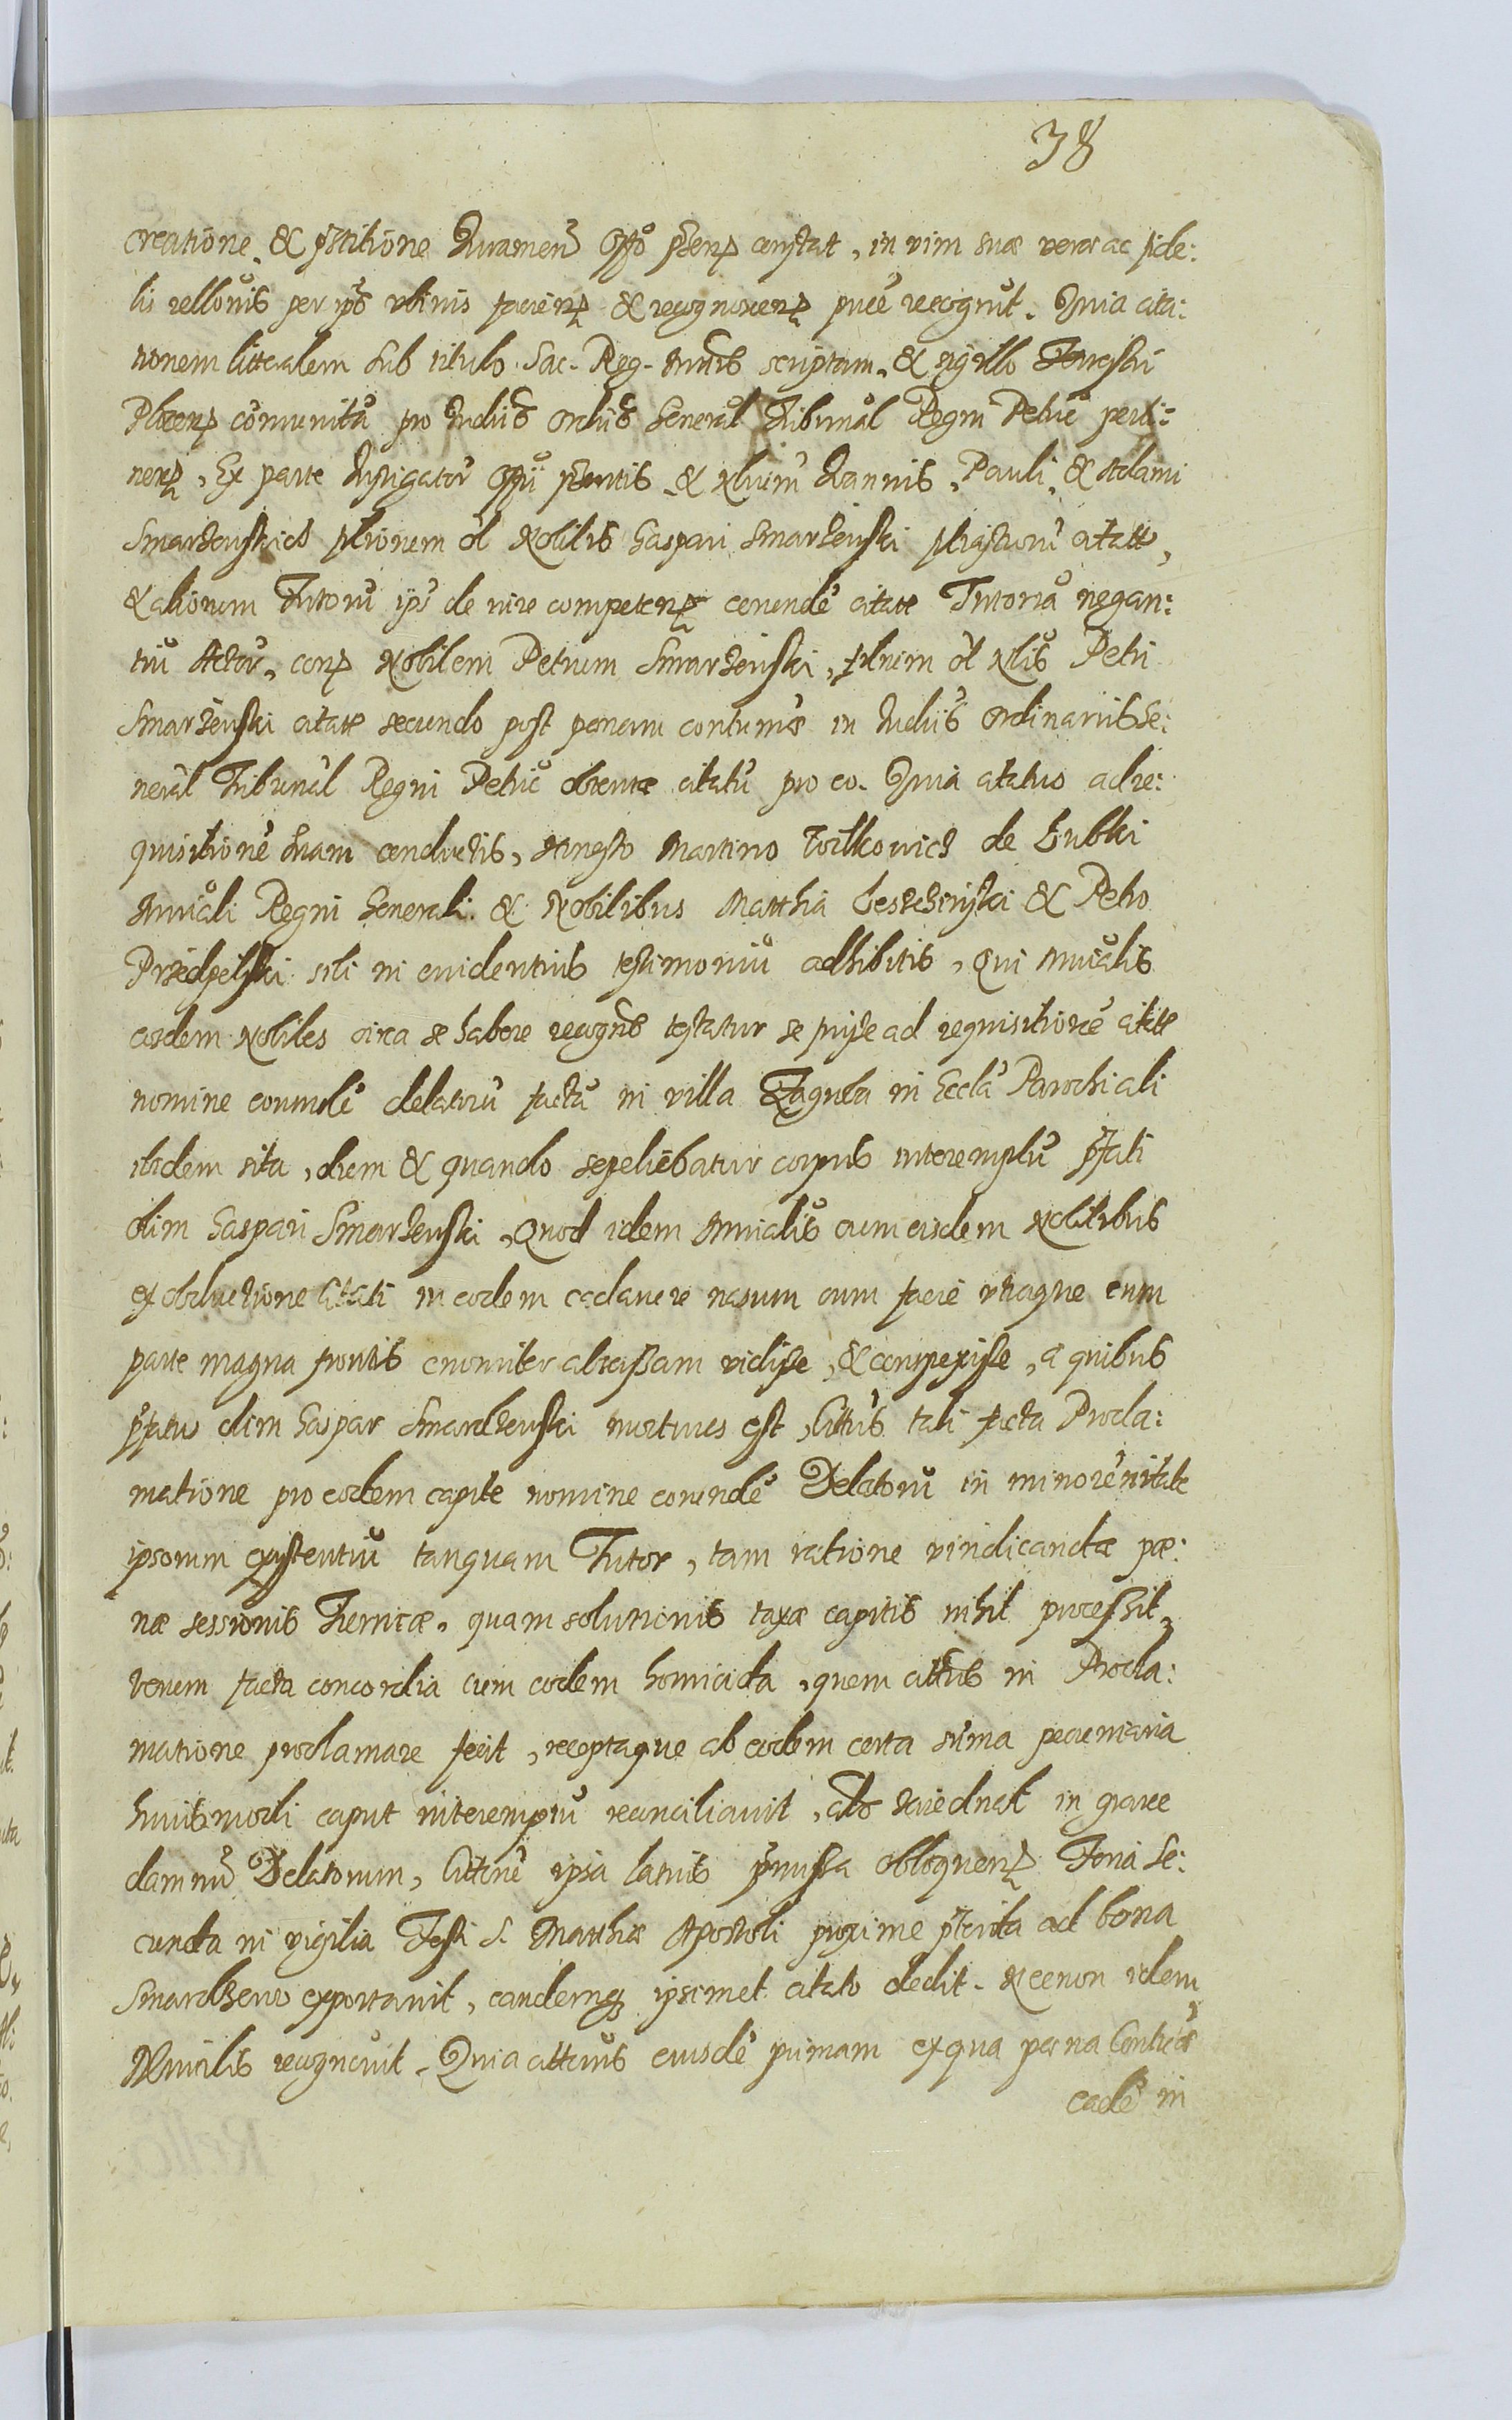 38
creatione, & pstitione Iuramen Offo psenp constat, in vim suae verae ac fide:
lis rellonis per ips vltinis facienp & recognoscenp puce recognut. Quia cita:
tionem litteralem sub titulo Sac. Reg. Mttis scriptam, & sigillo Terrestri
Plocenp comunita pro Iudiis Ordiis General Tribunal Regni Petric perti:
nenp, Ex parte Instigator Offii psentis & Nlium Ioannis, Pauli, & Adami
Smardzewskich filiorum ol Nobilis Gaspari Smardzewski citatt,
& aliorum Tutoru ips de iure competenp eorunde citatt Tutoria negan:
tiu Actor, conp Nobilem Petrum Smardzewski, filium ol Nlis Petri
Smardzewski citatt secundo post penam contumae in Iudiis Ordinariis Ge:
neral Tribunal Regni Petric obtentae citatu pro eo. Quia citatus ad re:
quisitione suam conductis, Honesto Martino Woitkowicz de Lubki
Mniali Regni Generali & Nobilibus Matthia Leszczinski & Petro
Przedpelski sibi in euidentius testimoniu adhibitis, Qui Mnialis
eosdem Nobiles circa se habere recogns testatur se fuisse ad requisitione citatt
nomine eorunde delatoru facta in villa Zagroba in Eccla Parochiali
ibidem sita, diem & quando sepeliebatur corpus interemptu pfati
olim Gaspari Smardzewski, Quod idem Mnialis cum eisdem Nobilibus
ex obductione Citati in eodem cadauere nasum cum facie vtraque cum
parte magna frontis enormiter abrassam vidisse, & conspexisse, a quibus
pfatus olim Gaspar Smardzewski mortuus est, Cittus tali facta Procla:
matione pro eodem capite nomine eorunde Delatoru in minorennitate
ipsorum existentiu tanquam Tutor, tam ratione vindicandae pae:
nae sessionis Turris, quam solutionis taxae capitis nihil processit,
verum facta concordia cum eodem homicida, quem cittus in Procla:
matione proclamare fecit, receptaque ab eodem certa suma pecuniaria
huiusmodi caput interemptu reconciliauit, in graue
damnu Delatorum, Cittione ipsa latius pmissa obloquenp Feria Se:
cunda in vigilia Festi S. Matthiae Apostoli proxime pterita ad bona
Smardzewo exportauit, eandemq ipsimet citato dedit. Necnon idem
Mnialis recognouit. Quia cittionis eiusde primam ex qua paena Contucae
eade in